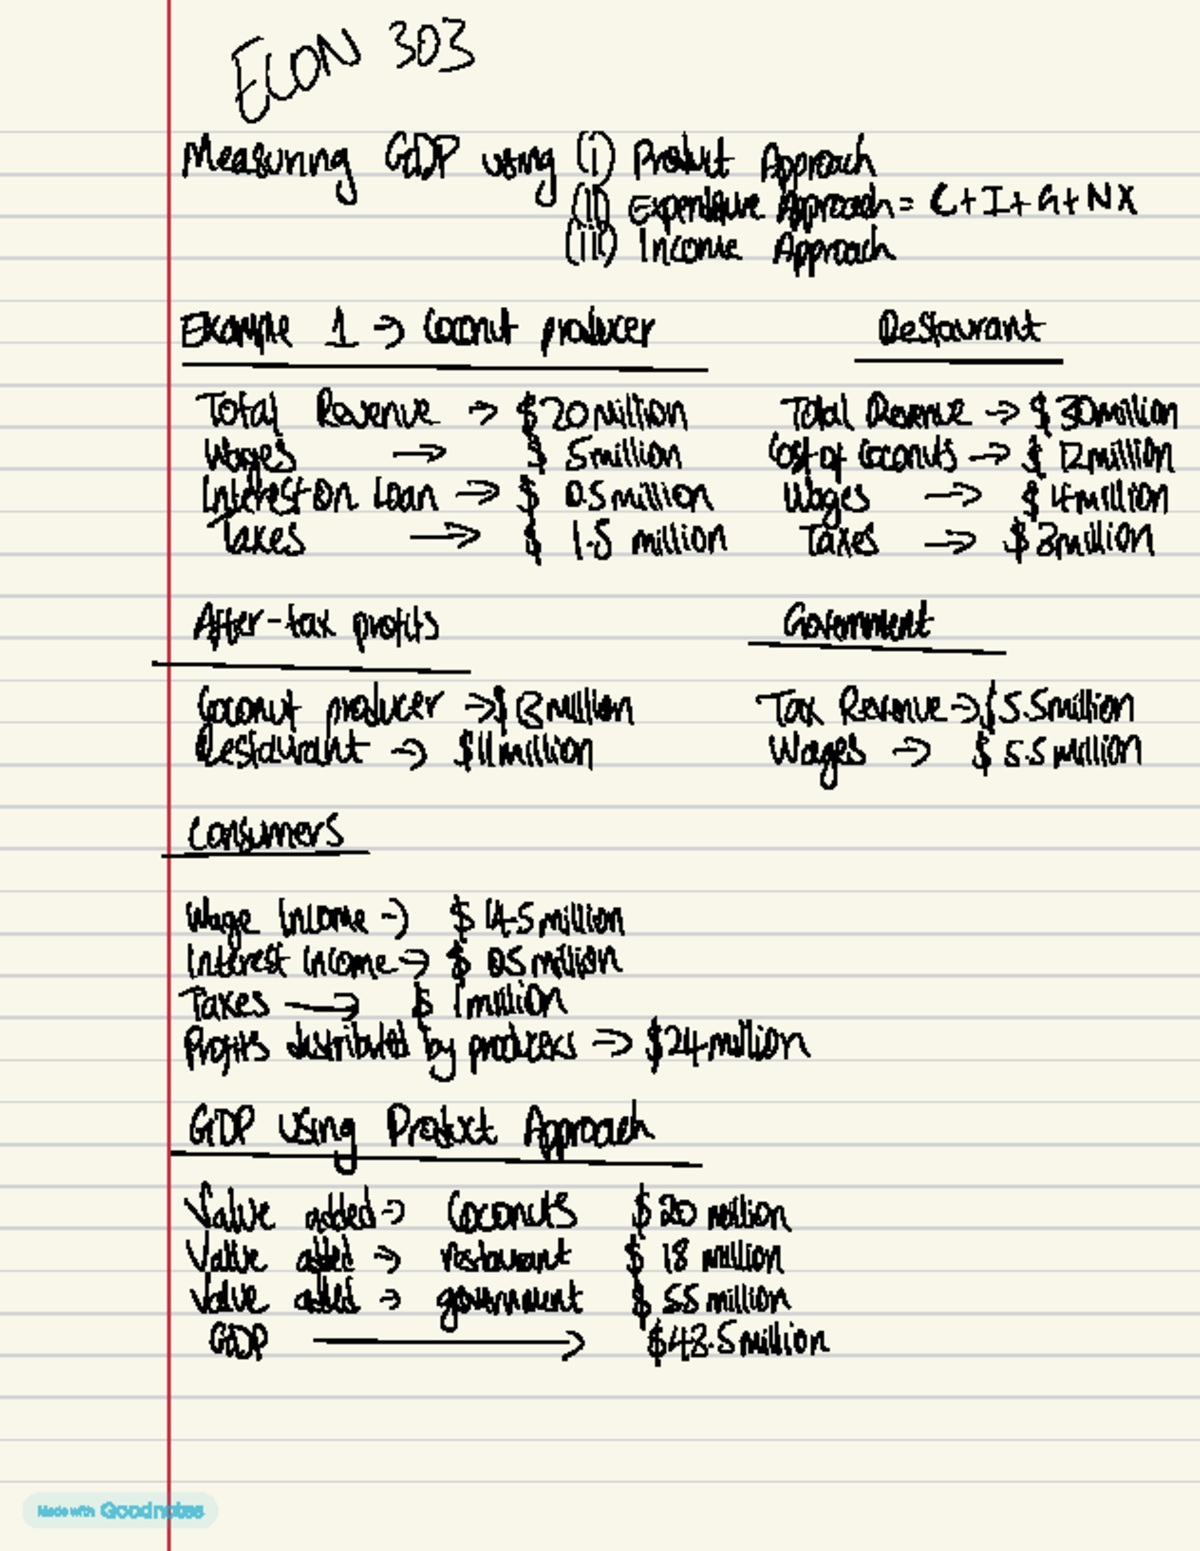 ECON 303
Measuring GDP using (i) Product Approach
(ii) Expenditure Approach = C+I+G+NX
(iii) Income Approach
Example 1 → Coconut producer
Restaurant
Total Revenue → $20 million
Total Revenue → $30 million
Wages → $ 5 million
Cost of Coconuts → $ 12 million
Interest on Loan → $ 0.5 million
Wages → $ 4 million
Taxes → $ 1.5 million
Taxes → $3 million
After-tax profits
Government
Coconut producer → $13 million
Tax Revenue → $5.5 million
Restaurant → $11 million
Wages → $ 5.5 million
Consumers
Wage Income → $ 14.5 million
Interest Income → $ 0.5 million
Taxes → $ 1 million
Profits distributed by producers → $24 million
GDP using Product Approach
Value added → Coconuts $20 million
Value added → restaurant $ 18 million
Value added → government $ 5.5 million
GDP → $48.5 million
Made with Goodnotes